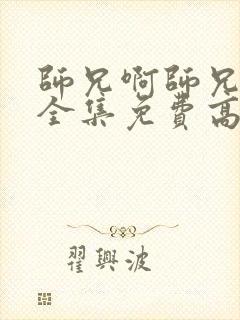 師兄啊師兄
全集免費高
翟興波